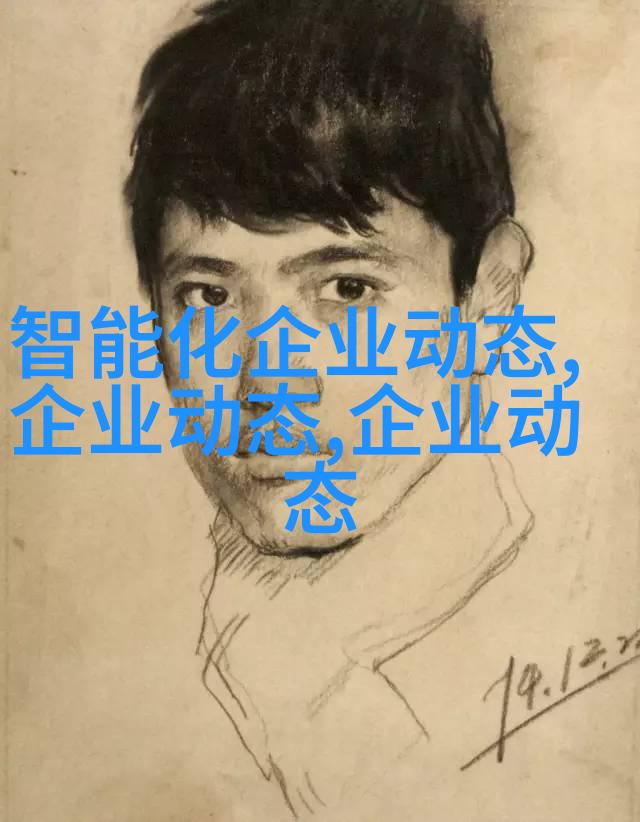 智能化企业动态,
企业动态,企业动
态
74.12.2